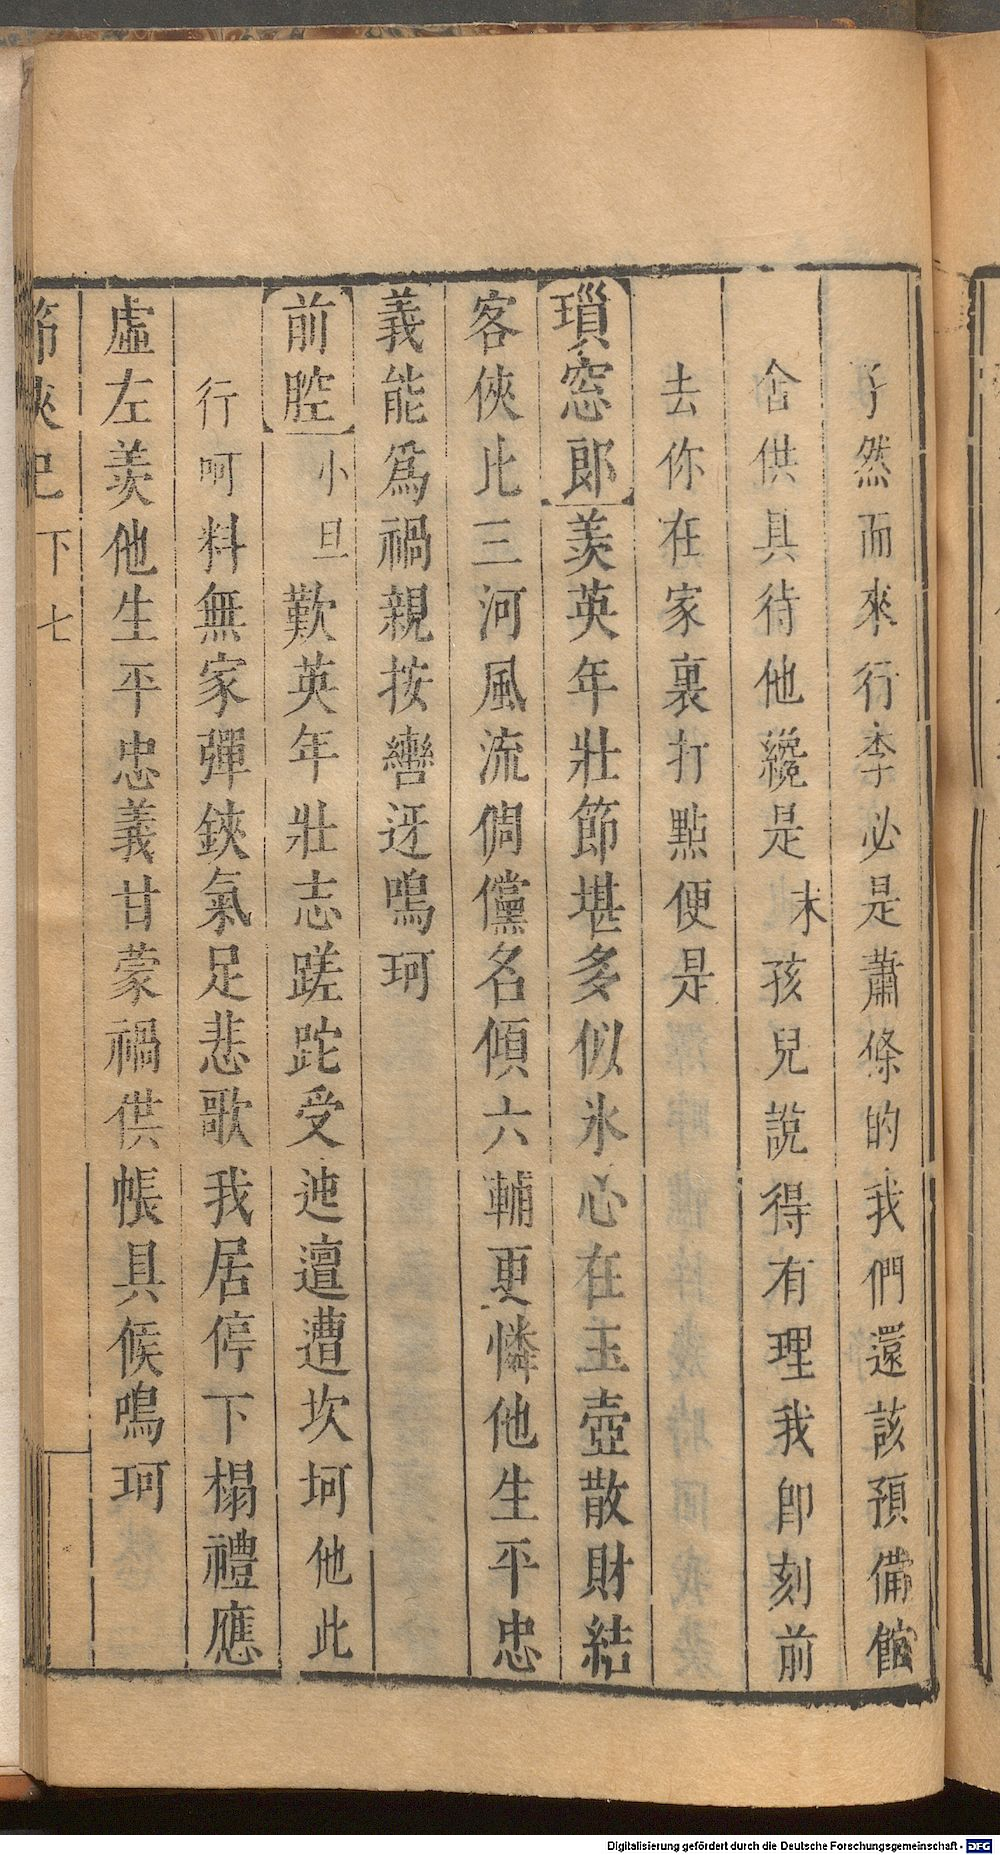 孑然而來行李必是蕭條的我們還該預備館
舍供具待他纔是末孩兒說得有理我卽刻前
去你在家裏打點便是
瑣窓郎羨英年壯節堪多似氷心在玉壺散財結
客俠比三河風流倜儻名傾六輔更憐他生平忠
義能爲禍親按轡迓鳴珂
前腔小旦歎英年壯志蹉跎受迍邅遭坎坷他此
行呵料無家彈鋏氣足悲歌我居停下榻禮應
虛左羨他生平忠義甘蒙禍供帳具候鳴珂
節俠記 下 七
Digitalisierung gefördert durch die Deutsche Forschungsgemeinschaft - DFG